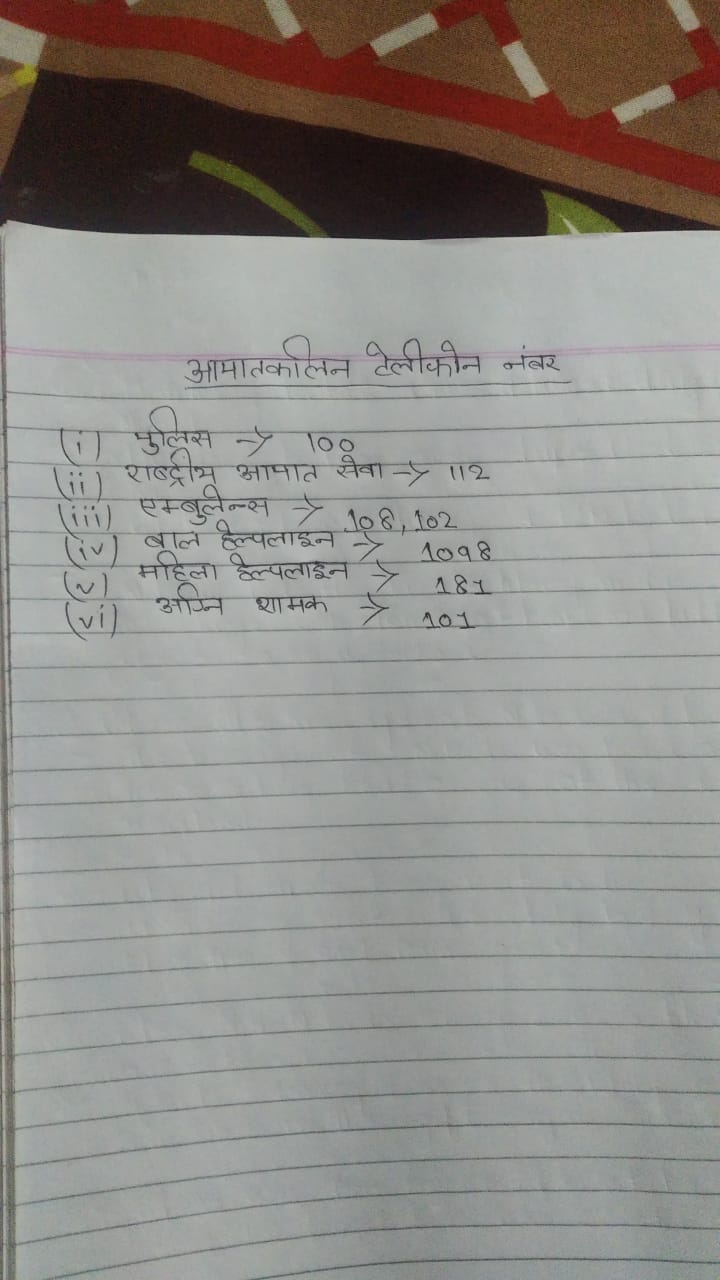 आपातकालिन टेलीफोन नंबर
(i) पुलिस -> 100
(ii) राष्ट्रीय आपात सेवा -> 112
(iii) एम्बुलेन्स -> 108, 102
(iv) बाल हेल्पलाइन -> 1098
(v) महिला हेल्पलाइन -> 181
(vi) अग्नि शामक -> 101